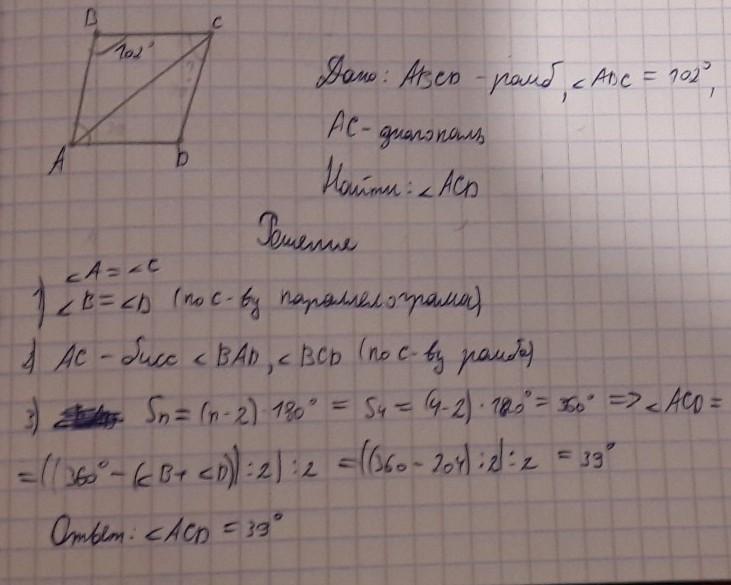 B C
102°
?
A D
Дано: ABCD - ромб, ∠ABC = 102°,
AC - диагональ
Найти: ∠ACD
Решение
1) ∠A = ∠C
∠B = ∠D (по с-ву параллелограма)
2) AC - бисс ∠BAD, ∠BCD (по с-ву ромба)
3) Sn = (n-2) · 180° = S4 = (4-2) · 180° = 360° => ∠ACD =
= ((360° - (∠B + ∠D)) : 2) : 2 = ((360 - 204) : 2) : 2 = 39°
Ответ: ∠ACD = 39°